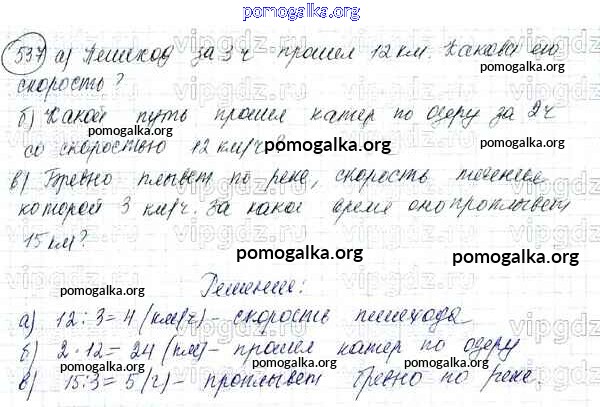 pomogalka.org
537 а) Пешеход за 3 ч прошел 12 км. Какова его
скорость?
б) Какой путь прошел катер по озеру за 2 ч
со скоростью 12 км/ч?
в) Бревно плывет по реке, скорость течения
которой 3 км/ч. За какое время оно проплывет
15 км?
Решение:
а) 12:3=4 (км/ч) - скорость пешехода
б) 2·12= 24 (км) - прошел катер по озеру
в) 15:3=5 (ч) - проплывет бревно по реке.
pomogalka.org
pomogalka.org
pomogalka.org
pomogalka.org
pomogalka.org
pomogalka.org
pomogalka.org
pomogalka.org
vipgdz.ru